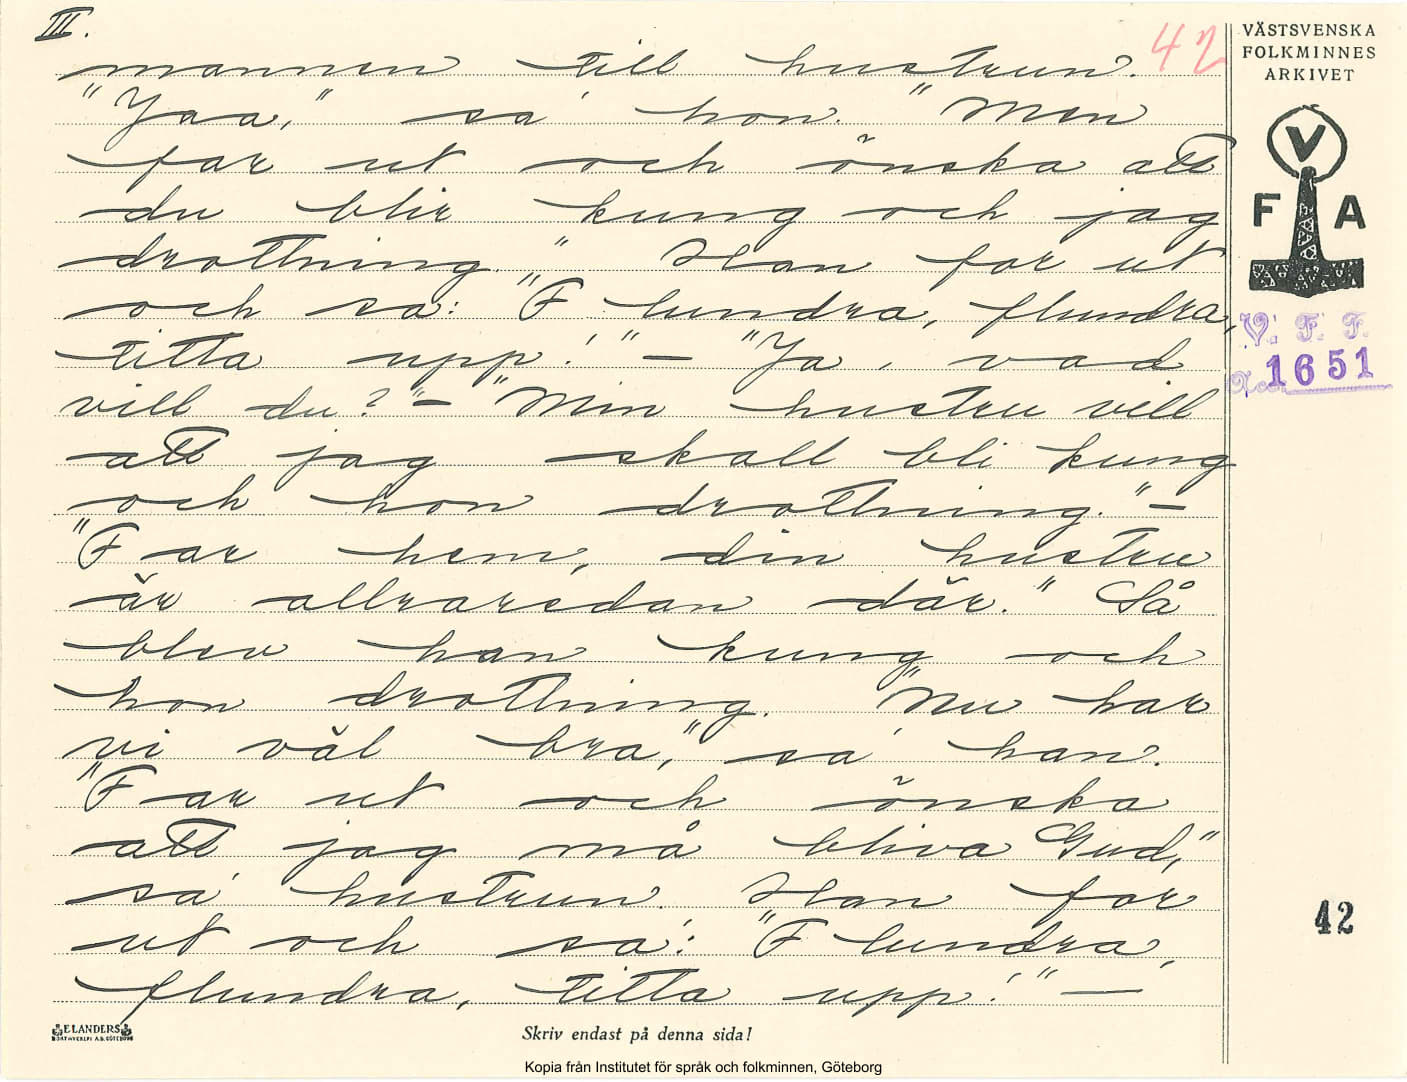 III.
42
mannen till hustrun.
"Jaa," sa' hon. "Men
far ut och önska att
du blir kung och jag
drottning." Han for ut
och sa: "Flundra, flundra,
titta upp!" — "Ja, vad
vill du?" — "Min hustru vill
att jag skall bli kung
och hon drottning." —
"Far hem, din hustru
är allraredan där." Så
blev han kung och
hon drottning. "Nu har
vi väl bra," sa' han.
"Far ut och önska
att jag må bliva Gud,"
sa' hustrun. Han for
ut och sa': "Flundra,
flundra, titta upp!" —
VÄSTSVENSKA
FOLKMINNES
ARKIVET
V
F A
V. F. F.
1651
42
ELANDERS
Skriv endast på denna sida!
Kopia från Institutet för språk och folkminnen, Göteborg